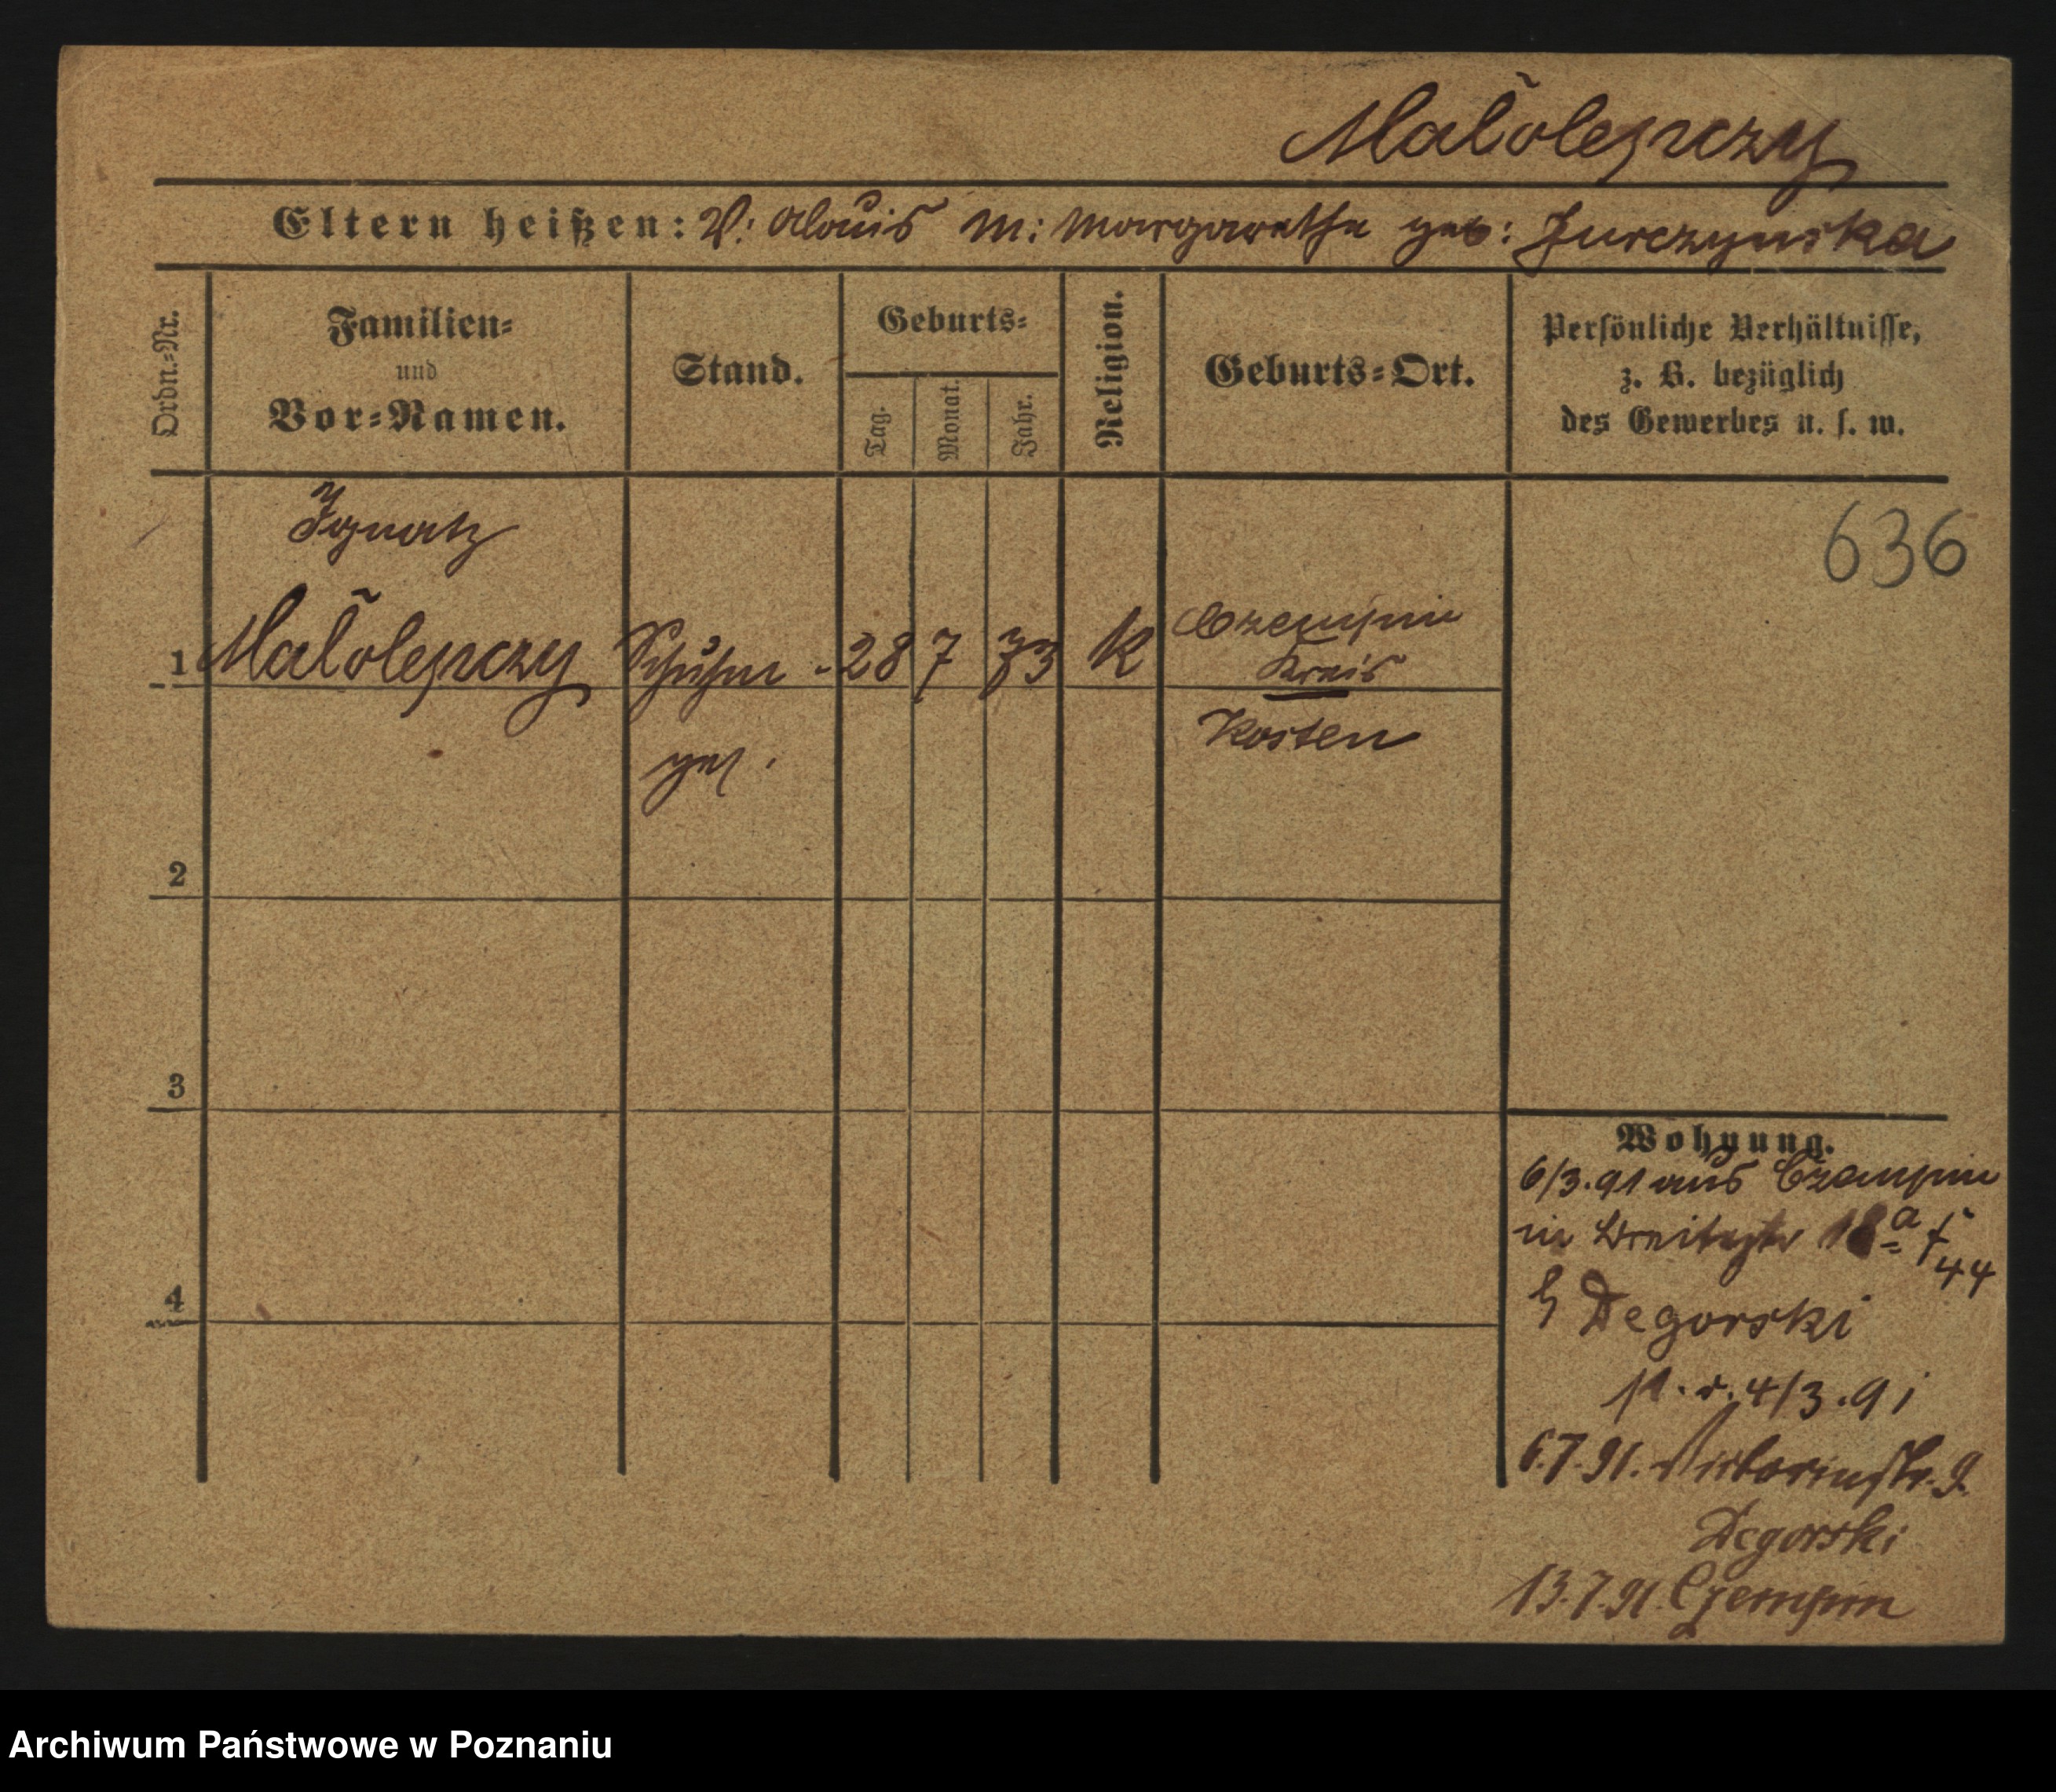 Małolepszy
Eltern heißen: V: Alouis M: Margarethe geb: Jurczynska
Ordn.-Nr.
Familien-
und
Vor-Namen.
Stand.
Geburts-
Tag.
Monat.
Jahr.
Religion.
Geburts-Ort.
Persönliche Verhältnisse,
z. B. bezüglich
des Gewerbes u. s. w.
636
Ignatz
1 Małolepszy Schuhm - 28 7 73 K Czempin
Kreis
Kosten
ges.
2
3
4
Wohnung.
6/3.91 aus Czempin
in Breitestr 18a
44
b Degorski
4/3.91
6.7.91. 9.
Degorski
13.7.91. Czempin
Archiwum Państwowe w Poznaniu